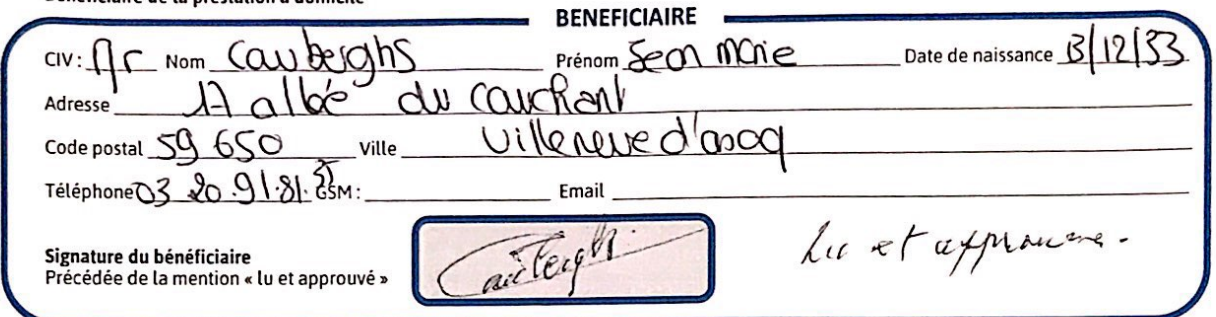 Bénéficiaire de la prestation à domicile
BENEFICIAIRE
CIV : Mr Nom Cauberghs Prénom Jean Marie Date de naissance 13/12/33
Adresse 17 allée du couchant
Code postal 59 650 Ville Villeneuve d'ascq
Téléphone 03 20.91.81. GSM : Email
Signature du bénéficiaire
Précédée de la mention « lu et approuvé »
Cauberghs
Lu et approuvé.